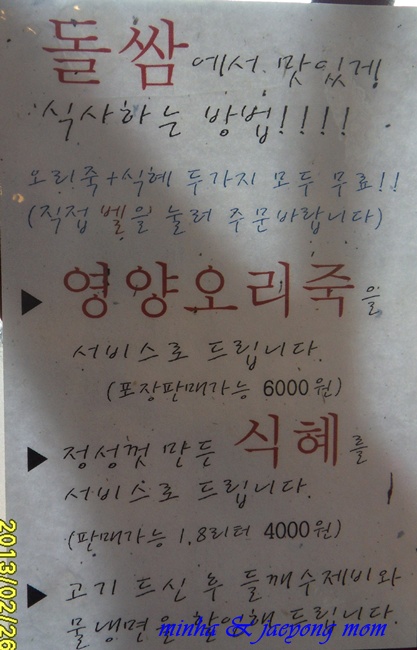 돌쌈에서 맛있게
식사하는 방법!!!!
오리죽+식혜 두가지 모두 무료!!
(직접 벨을 눌러 주문바랍니다)
▶ 영양오리죽을
서비스로 드립니다.
(포장판매가능 6000원)
▶ 정성껏 만든 식혜를
서비스로 드립니다.
(판매가능 1.8리터 4000원)
▶ 고기 드신 후 들깨수제비와
물냉면을 할인해 드립니다.
minha & jaeyong mom
2013/02/26